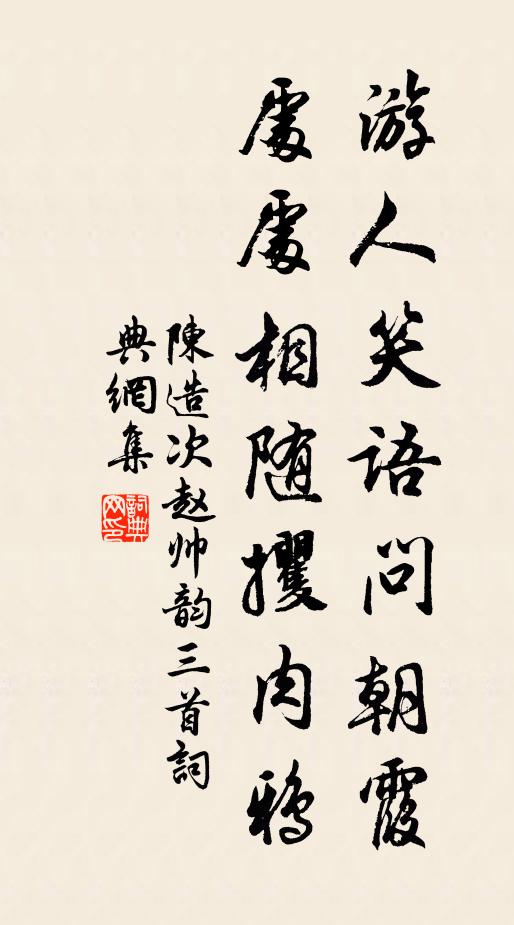 游人笑语問朝霞
處處相随攫肉鴉
陳造次赵帅韵三首詞
典網集
詞典
网印